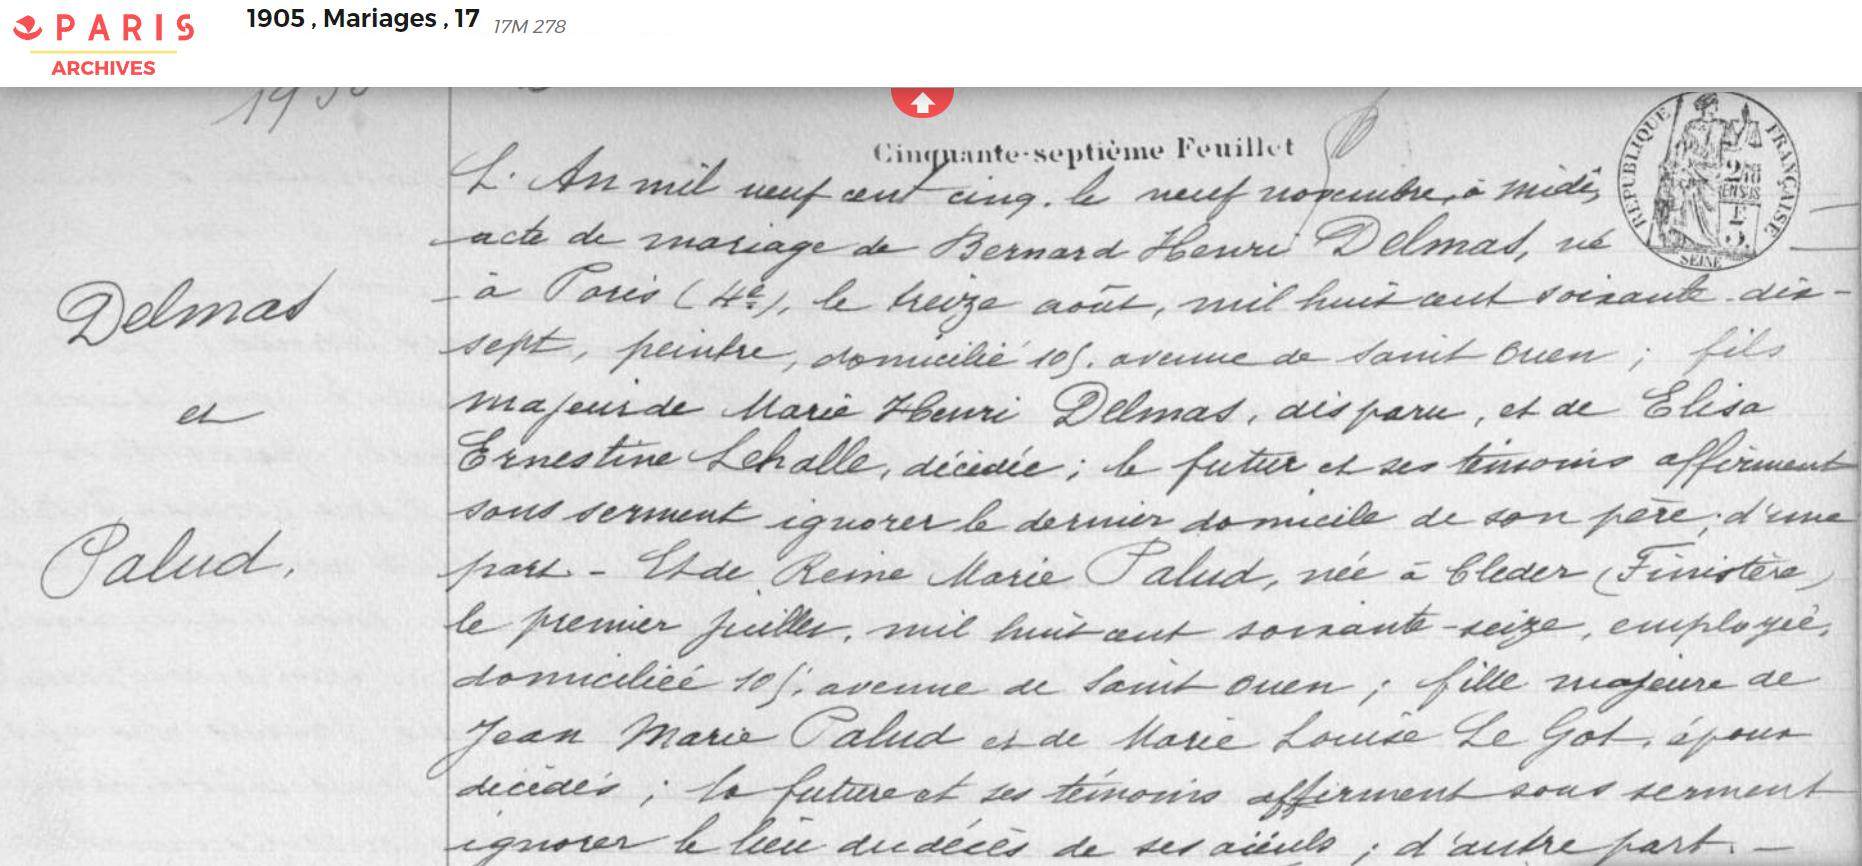 PARIS
ARCHIVES
1905 , Mariages , 17 17M 278
Cinquante-septième Feuillet
RÉPUBLIQUE FRANÇAISE
SEINE
L'An mil neuf cent cinq, le neuf novembre, à midi,
acte de mariage de Bernard Henri Delmas, né
à Paris (4e), le treize août, mil huit cent soixante-dix-
sept, peintre, domicilié 105, avenue de Saint Ouen ; fils
majeur de Marie Henri Delmas, disparu, et de Elisa
Ernestine Lehalle, décédée ; le futur et ses témoins affirment
sous serment ignorer le dernier domicile de son père ; d'une
part. - Et de Reine Marie Palud, née à Cleder (Finistère)
le premier juillet, mil huit cent soixante-seize, employée,
domiciliée 105, avenue de Saint Ouen ; fille majeure de
Jean Marie Palud et de Marie Louise Le Got, époux
décédés ; la future et ses témoins affirment sous serment
ignorer le lieu du décès de ses aïeuls ; d'autre part. -
Delmas
et
Palud.